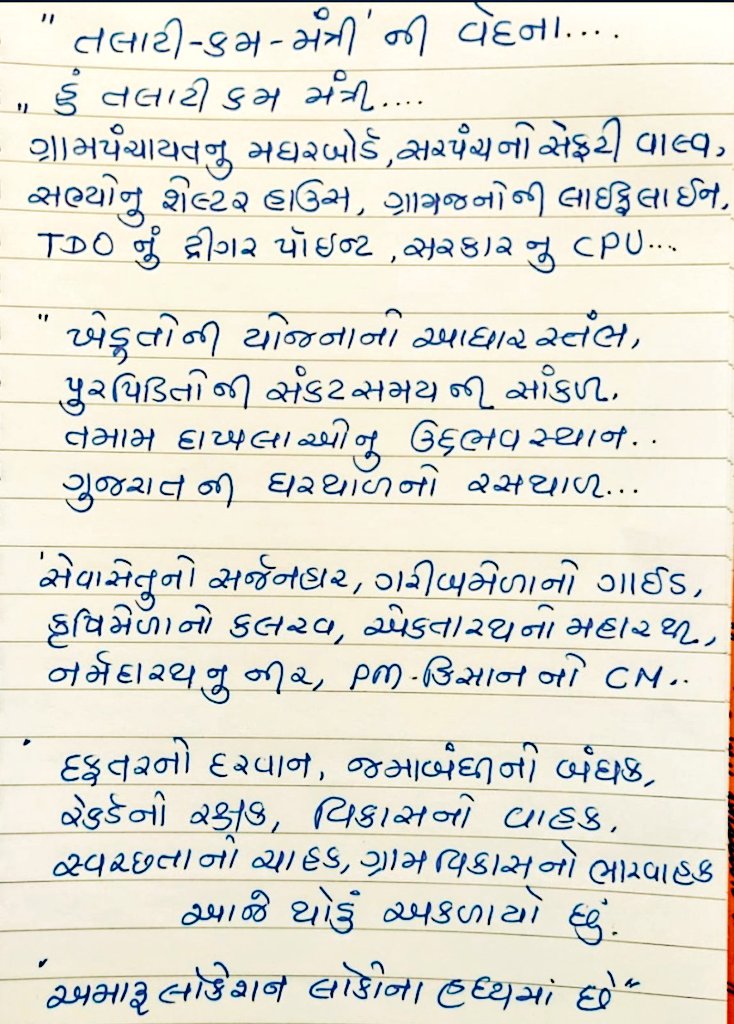 " તલાટી-કમ-મંત્રી' ની વેદના....
" હું તલાટી કમ મંત્રી....
ગ્રામપંચાયતનુ મધરબોર્ડ, સરપંચનો સેફટી વાલ્વ,
સભ્યોનુ શેલ્ટર હાઉસ, ગ્રામજનોની લાઈફલાઈન.
TDO નું ટ્રીગર પોઈન્ટ, સરકાર નુ CPU...
" ખેડૂતોની યોજનાનો આધાર સ્તંભ,
પુરપિડિતોની સંકટસમય ની સાંકળ.
તમામ દાખલાઓનુ ઉદ્દભવ સ્થાન..
ગુજરાત ની ઘરથાળનો રસથાળ...
'સેવાસેતુનો સર્જનહાર, ગરીબમેળાનો ગાઈડ,
કૃષિમેળાનો કલરવ, એકતારથનો મહારથી,
નર્મદારથનુ નીર, PM-કિસાન નો CM..
' દફતરનો દરવાન, જમાબંધીનો બંધક,
રેકર્ડનો રક્ષક, વિકાસનો વાહક.
સ્વચ્છતાનો ચાહક, ગ્રામવિકાસનો ભારવાહક
આજે થોડું અકળાયો છું.
"અમારૂ લોકેશન લોકોના હ્રદયમાં છે"